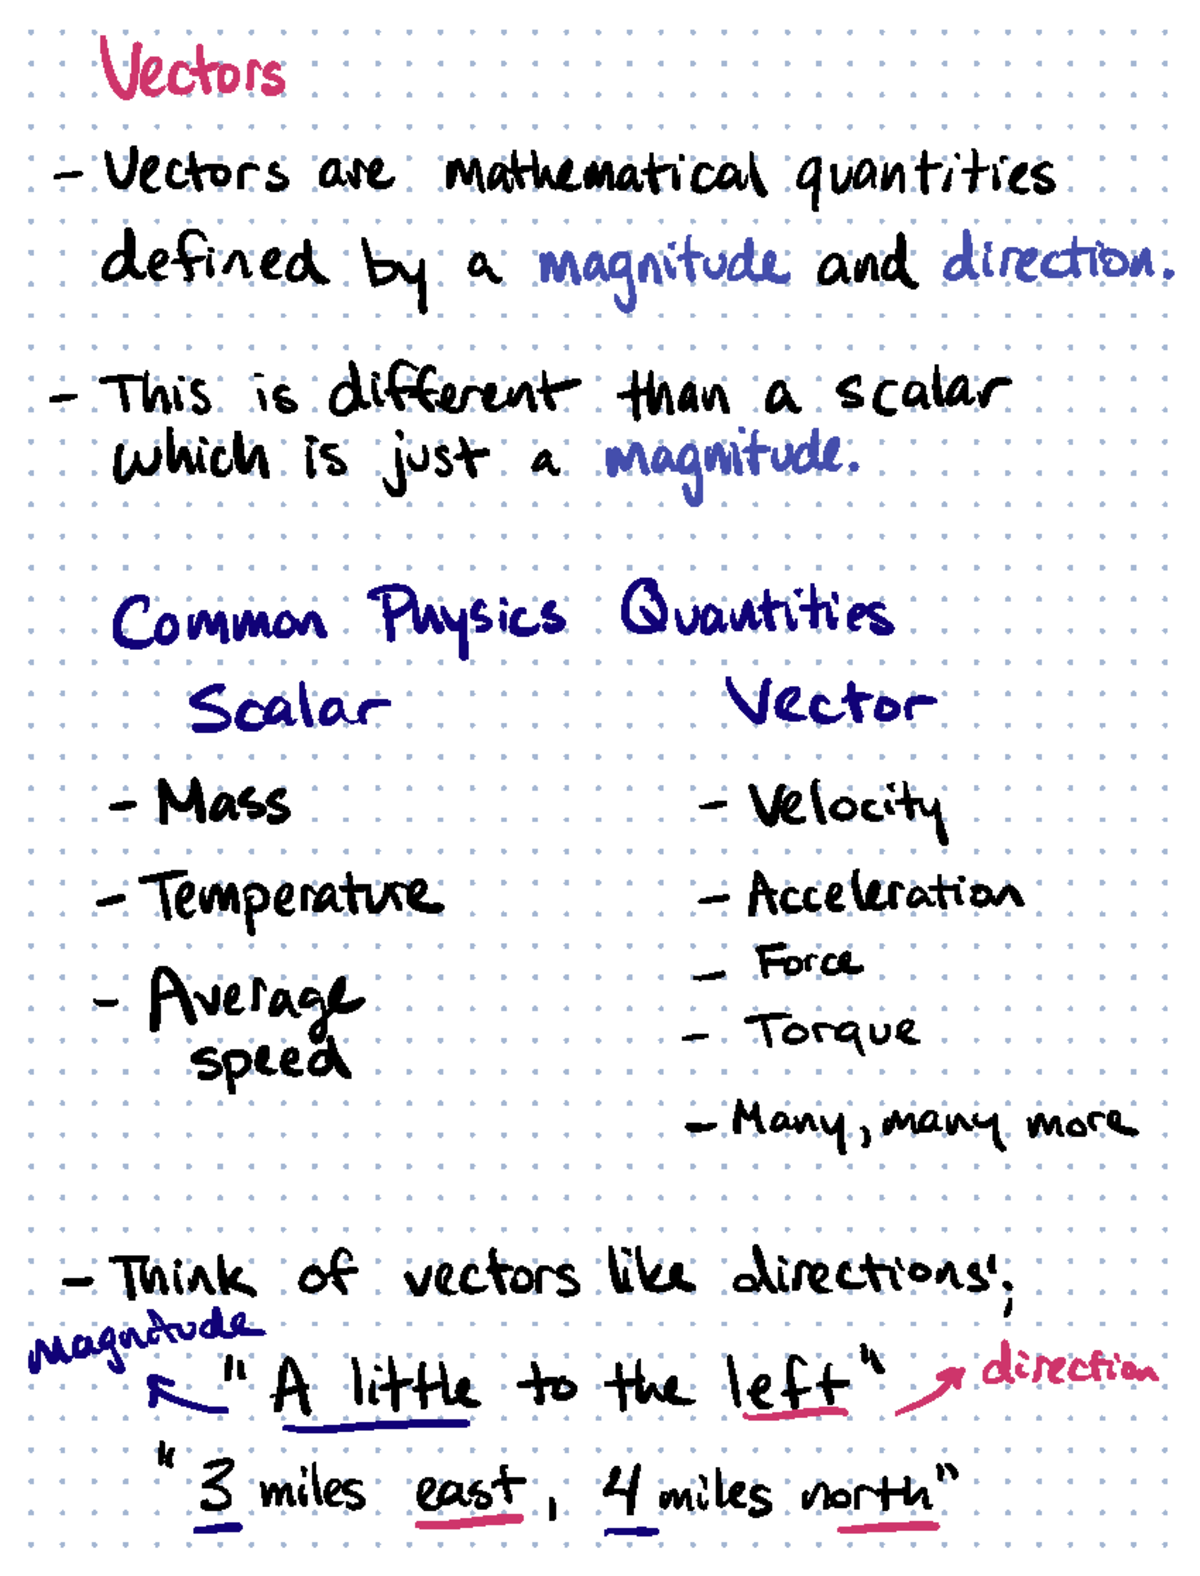 Vectors
- Vectors are mathematical quantities
defined by a magnitude and direction.
- This is different than a scalar
which is just a magnitude.
Common Physics Quantities
Scalar Vector
- Mass - Velocity
- Temperature - Acceleration
- Force
- Average - Torque
speed
- Many, many more
- Think of vectors like directions;
magnitude
"A little to the left" direction
"3 miles east, 4 miles north"